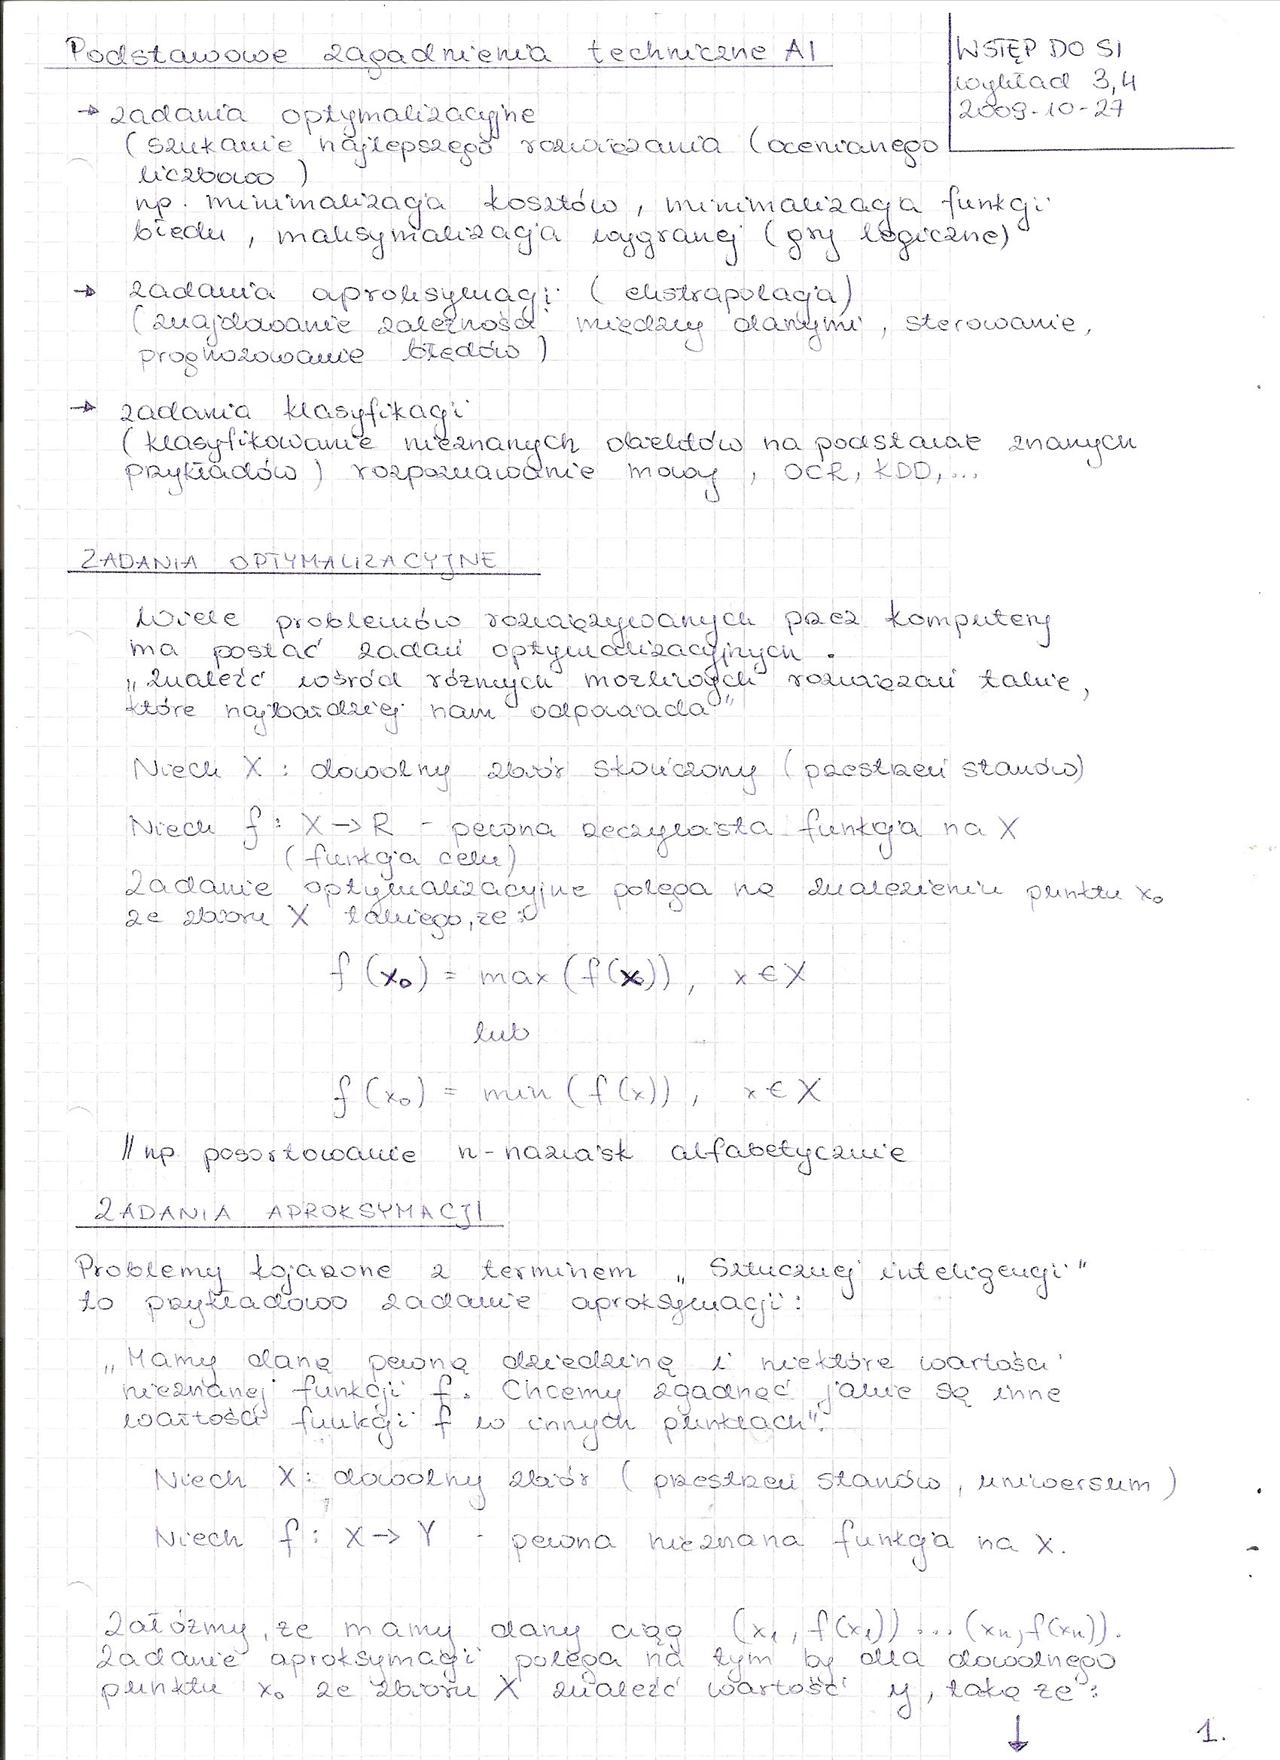 Podstawowe zagadnienia techniczne AI
WSTĘP DO SI
wykład 3,4
2009-10-27
→ zadania optymalizacyjne
(szukanie najlepszego rozwiązania (ocenianego
liczbowo)
np. minimalizacja kosztów, minimalizacja funkcji
błędu, maksymalizacja wygranej (gry logiczne)
→ zadania aproksymacji (ekstrapolacja)
(znajdowanie zależności między danymi, sterowanie,
prognozowanie błędów)
→ zadania klasyfikacji
(klasyfikowanie nieznanych obiektów na podstawie znanych
przykładów) rozpoznawanie mowy, OCR, KDD,...
ZADANIA OPTYMALIZACYJNE
Wiele problemów rozwiązywanych przez komputery
ma postać zadań optymalizacyjnych.
„Znaleźć wśród różnych możliwych rozwiązań takie,
które najbardziej nam odpowiada"
Niech X : dowolny zbiór skończony (przestrzeń stanów)
Niech f : X → R - pewna rzeczywista funkcja na X
(funkcja celu)
Zadanie optymalizacyjne polega na znalezieniu punktu x₀
ze zbioru X takiego, że:
f(x₀) = max (f(x)), x ∈ X
lub
f(x₀) = min (f(x)), x ∈ X
// np posortowanie n-nazwisk alfabetycznie
ZADANIA APROKSYMACJI
Problemy kojarzone z terminem „Sztucznej inteligencji"
to przykładowo zadanie aproksymacji:
„Mamy daną pewną dziedzinę i niektóre wartości
nieznanej funkcji f. Chcemy zgadnąć jakie są inne
wartości funkcji f w innych punktach".
Niech X : dowolny zbiór (przestrzeń stanów, uniwersum)
Niech f : X → Y - pewna nieznana funkcja na X.
Załóżmy, że mamy dany ciąg (x₁, f(x₁)) ... (xₙ, f(xₙ)).
Zadanie aproksymacji polega na tym by dla dowolnego
punktu x₀ ze zbioru X znaleźć wartość y, taką że:
↓ 1.